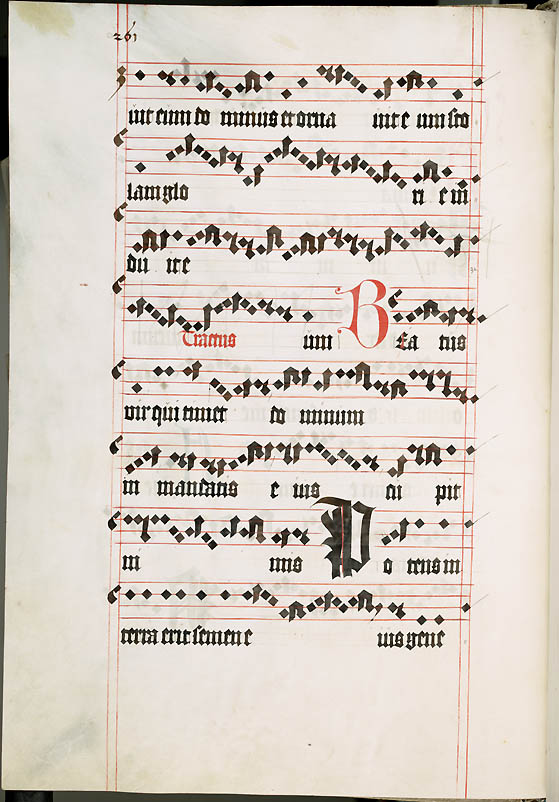 261
iuit eum do minus et orna uit e um sto
lam glo ri e in
du it e
Tractus um BEa tus
vir qui timet do minum
in mandatis e ius cu pit
ni mis Po tens in
terra erit semen e ius gene